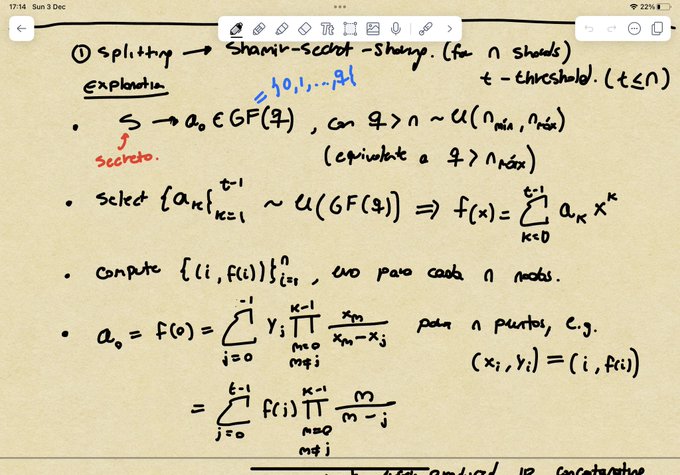 17:14 Sun 3 Dec
22%
① Splitting → Shamir-Secret-Sharing. (for n shards)
t-threshold. (t ≤ n)
Explanation
= {0, 1, ..., q{
• S → a₀ ∈ GF(q), con q > n ~ U(n_mín, n_máx)
secreto.
(equivalente a q > n_máx)
• Select {a_k}_{k=1}^{t-1} ~ U(GF(q)) ⇒ f(x) = ∑_{k=0}^{t-1} a_k x^k
• compute {(i, f(i))}_{i=1}^{n}, uno para cada n nodos.
• a₀ = f(0) = ∑_{j=0}^{-1} y_j ∏_{m=0, m≠j}^{k-1} x_m / (x_m - x_j) para n puntos, e.g.
(x_i, y_i) = (i, f(i))
= ∑_{j=0}^{t-1} f(j) ∏_{m=0, m≠j}^{k-1} m / (m - j)